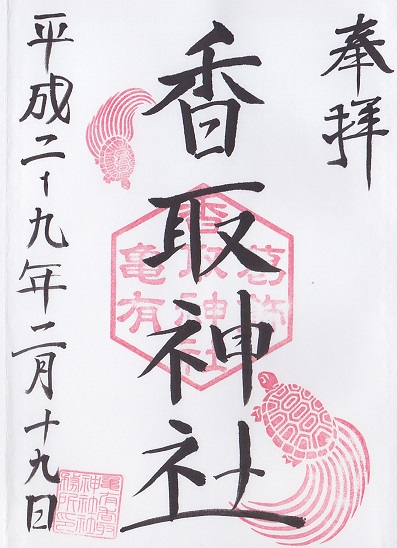 奉拝
葛飾
香取神社
亀有
香取神社
平成二十九年二月十九日